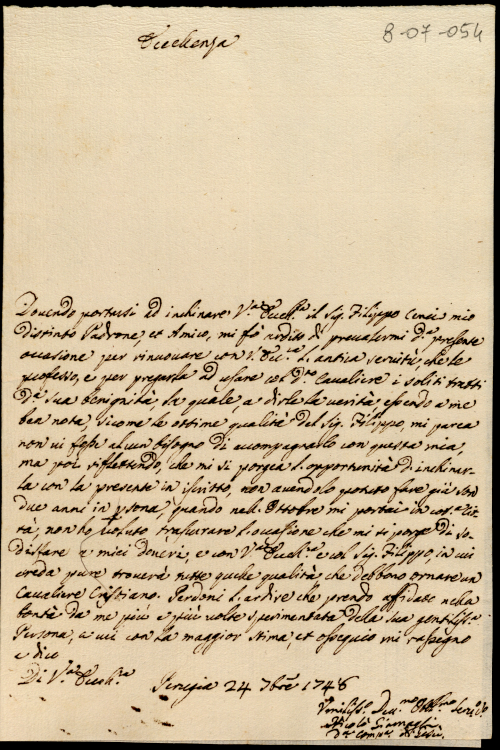 Eccellenza
8-07-054
Dovendo portarsi ad inchinare V.ª Eccll.ª il Sig. Filippo Cenci mio
distinto Padrone, et Amico, mi fò ardito di prevalermi d.ª presente
occasione per rinnovare con V. Ecc.ª l'antica servitù, che le
professo, e per pregarla ad usare col d.º Cavaliere i soliti tratti
d.ª sua benignità la quale, a dirle la verità essendo a me
ben nota, sicome le ottime qualità del Sig. Filippo, mi parea
non vi fosse alcun bisogno di accompagnarlo con questa mia,
ma poi riflettendo, che mi si porgea l'opportunità d'inchinar-
la con la presente in iscritto, non avendolo potuto fare già son
due anni in psona, quando nell'Ottobre mi portai in cot.ª Cit-
tà, non ho voluto trascurare l'occasione che mi si porge di so-
disfare a miei doveri, e con V.ª Eccell.ª e col Sig. Filippo, in cui
creda pure troverà tutte quelle qualità, che debbono ornare un
Cavaliere Cristiano. Perdoni l'ardire che prendo affidato nella
bontà da me più e più volte sperimentata della sua gentiliss.ª
Persona, a cui con la maggior stima, et ossequio mi rassegno
e dico
Di V.ª Eccll.ª Perugia 24 7bre 1748
Umiliss.º Dev.mo Obb.mo Serv.e
Nicolò
D.ª Comp.ª di Gesù